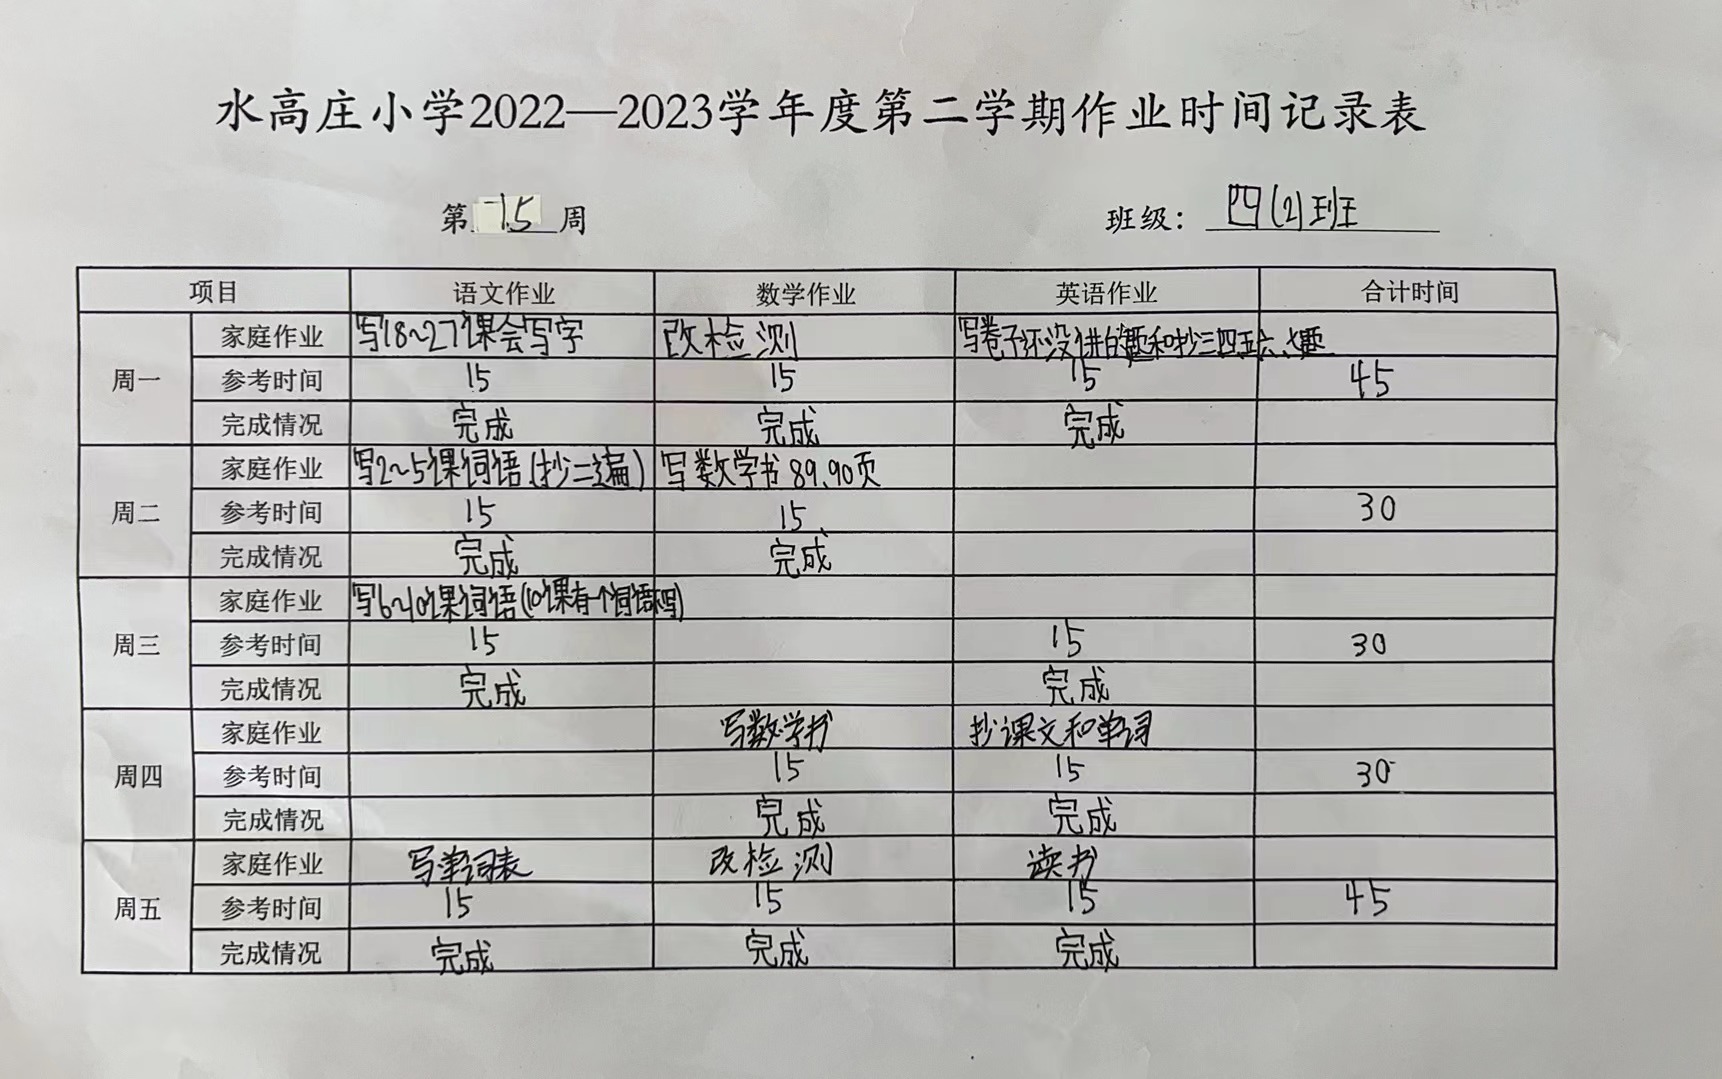 水高庄小学2022—2023学年度第二学期作业时间记录表
第 15 周 班级： 四(2)班
项目 语文作业 数学作业 英语作业 合计时间
周一 家庭作业 写18~27课会写字 改检测 写卷子还没讲的题和抄三四五六、七题
参考时间 15 15 15 45
完成情况 完成 完成 完成
周二 家庭作业 写2~5课词语(抄二遍) 写数学书89、90页
参考时间 15 15 30
完成情况 完成 完成
周三 家庭作业 写6~10课词语(10课有一个词语不写)
参考时间 15 15 30
完成情况 完成 完成
周四 家庭作业 写数学书 抄课文和单词
参考时间 15 15 30
完成情况 完成 完成
周五 家庭作业 写单词表 改检测 读书
参考时间 15 15 15 45
完成情况 完成 完成 完成